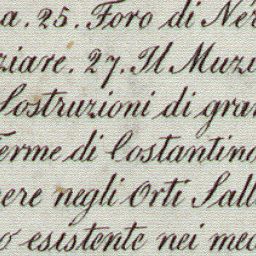 a. 25. Foro di Ner
ziare. 27. Il Muzu
Sostruzioni di gran
Terme di Costantino
ere negli Orti Sall
o esistente nei med